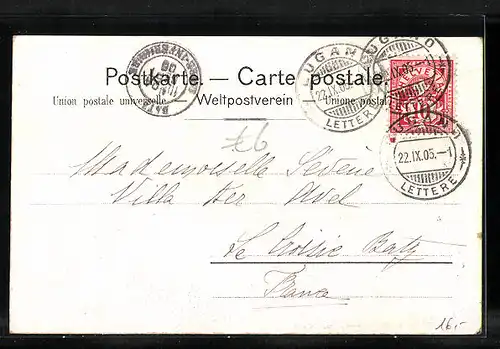 Postkarte. — Carte postale.
Union postale universelle. Weltpostverein Unione postal
LUGANO
22.IX.05.
LETTERE
LUGANO
IX.05.
HELVETIA
10
22.IX.05.—1
LETTERE
Mademoiselle
Villa Ker Avel
Le Croisic Batz
France
16.-